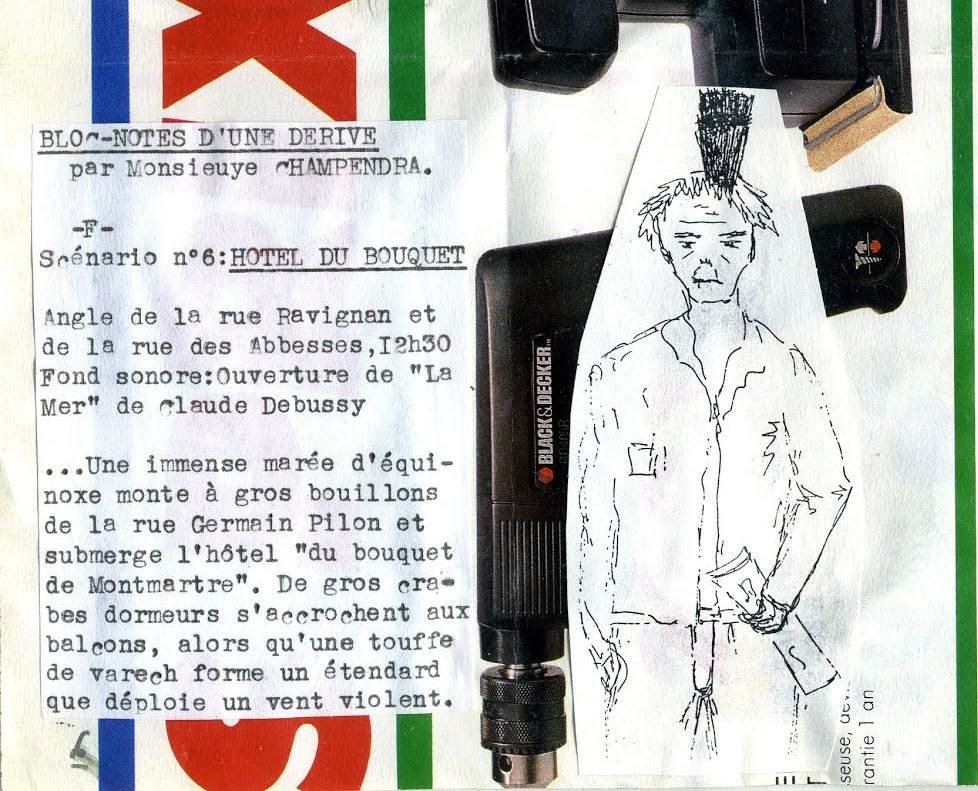 BLOC-NOTES D'UNE DERIVE
par Monsieuye CHAMPENDRA.
-F-
Scénario n°6:HOTEL DU BOUQUET
Angle de la rue Ravignan et
de la rue des Abbesses,I2h30
Fond sonore:Ouverture de "La
Mer" de Claude Debussy
...Une immense marée d'équi-
noxe monte à gros bouillons
de la rue Germain Pilon et
submerge l'hôtel "du bouquet
de Montmartre". De gros cra-
bes dormeurs s'accrochent aux
balcons, alors qu'une touffe
de varech forme un étendard
que déploie un vent violent.
BLACK&DECKER™
X
S
seuse,
rantie 1 an